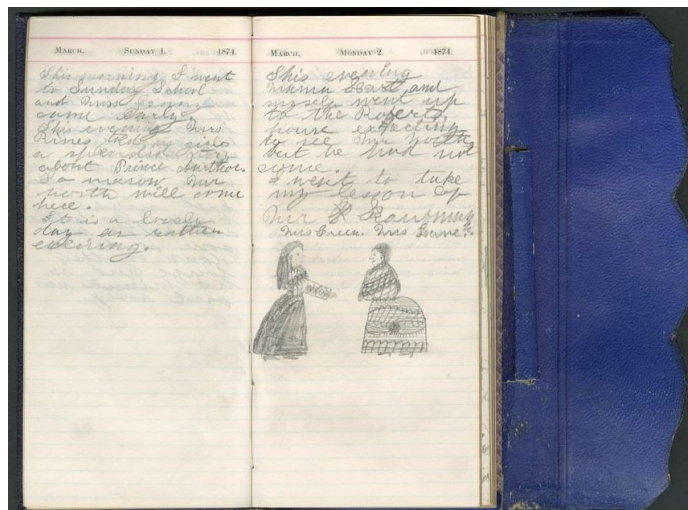 MARCH, SUNDAY 1. 1874.
This morning I went
to Sunday School
and Miss
came early.
This evening Mrs
Pines told us girls
a splendid story
about Prince Arthur.
Mr
North will come
here.
It is a lovely
day or rather
evening.
MARCH, MONDAY 2. 1874.
This evening
Mama and
myself went up
to the Rogers,
house expecting
to see Mr North
but he had not
come.
I went to take
my lesson of
Mr
Mrs Green. Mrs